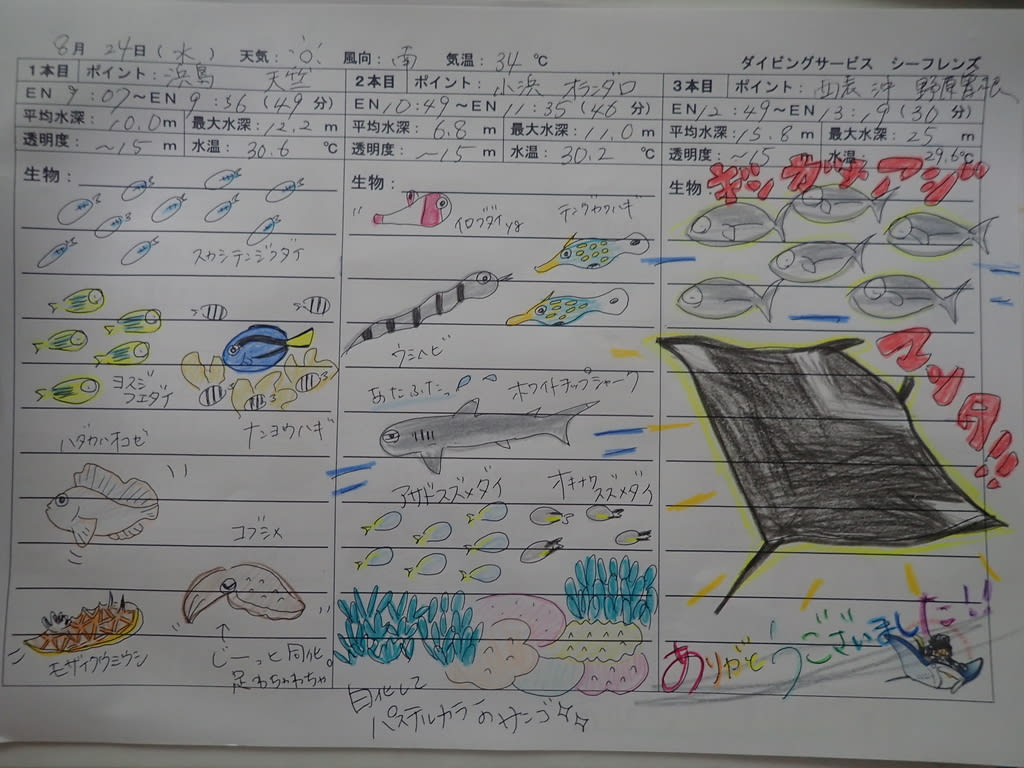 8月 24日(水) 天気: 風向: 南 気温: 34 ℃
ダイビングサービス シーフレンズ
1本目 ポイント: 浜島 天竺
EN 9:07～EN 9:56 (49分)
平均水深: 10.0m 最大水深: 12.2m
透明度: ～15m 水温: 30.6 ℃
生物:
スカシテンジクダイ
ヨスジ
フエダイ
ナンヨウハギ
ハダカハオコゼ
コブシメ
モザイクウミウシ
↑
じーっと同化。
足わちゃわちゃ
2本目 ポイント: 小浜 オランダロ
EN 10:49～EN 11:35 (46分)
平均水深: 6.8m 最大水深: 11.0m
透明度: ～15m 水温: 30.2 ℃
生物:
イロブダイyg
テングカワハギ
ウミヘビ
あたふた
ホワイトチップシャーク
アサドスズメダイ
オキナワ
スズメダイ
白化して
パステルカラーのサンゴ☆☆
3本目 ポイント: 西表 沖 野原曽根
EN 12:49～EN 13:19 (30分)
平均水深: 15.8m 最大水深: 25m
透明度: ～65m 水温: 29.6℃
生物
ギンガメアジ
マンタ!!
ありがとうございました!!